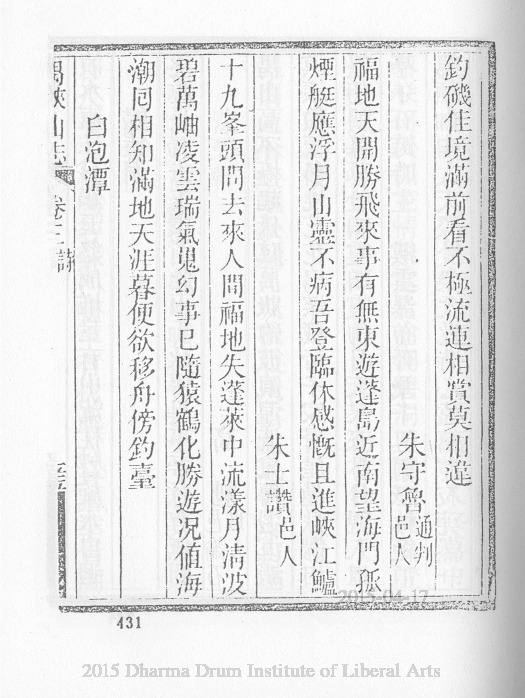 釣磯佳境滿前看不極流連相賞莫相違
朱守魯通判邑人
福地天開勝飛來事有無東遊蓬島近南望海門孤
煙艇應浮月山靈不病吾登臨休感慨且進峽江鱸
朱士讚邑人
十九峯頭問去來人間福地失蓬萊中流漾月清波
碧萬岫凌雲瑞氣嵬幻事已隨猿鶴化勝遊况值海
潮囘相知滿地天涯暮便欲移舟傍釣臺
白泡潭
禺峽山志 卷三 詩
2015-04-17
431
2015 Dharma Drum Institute of Liberal Arts